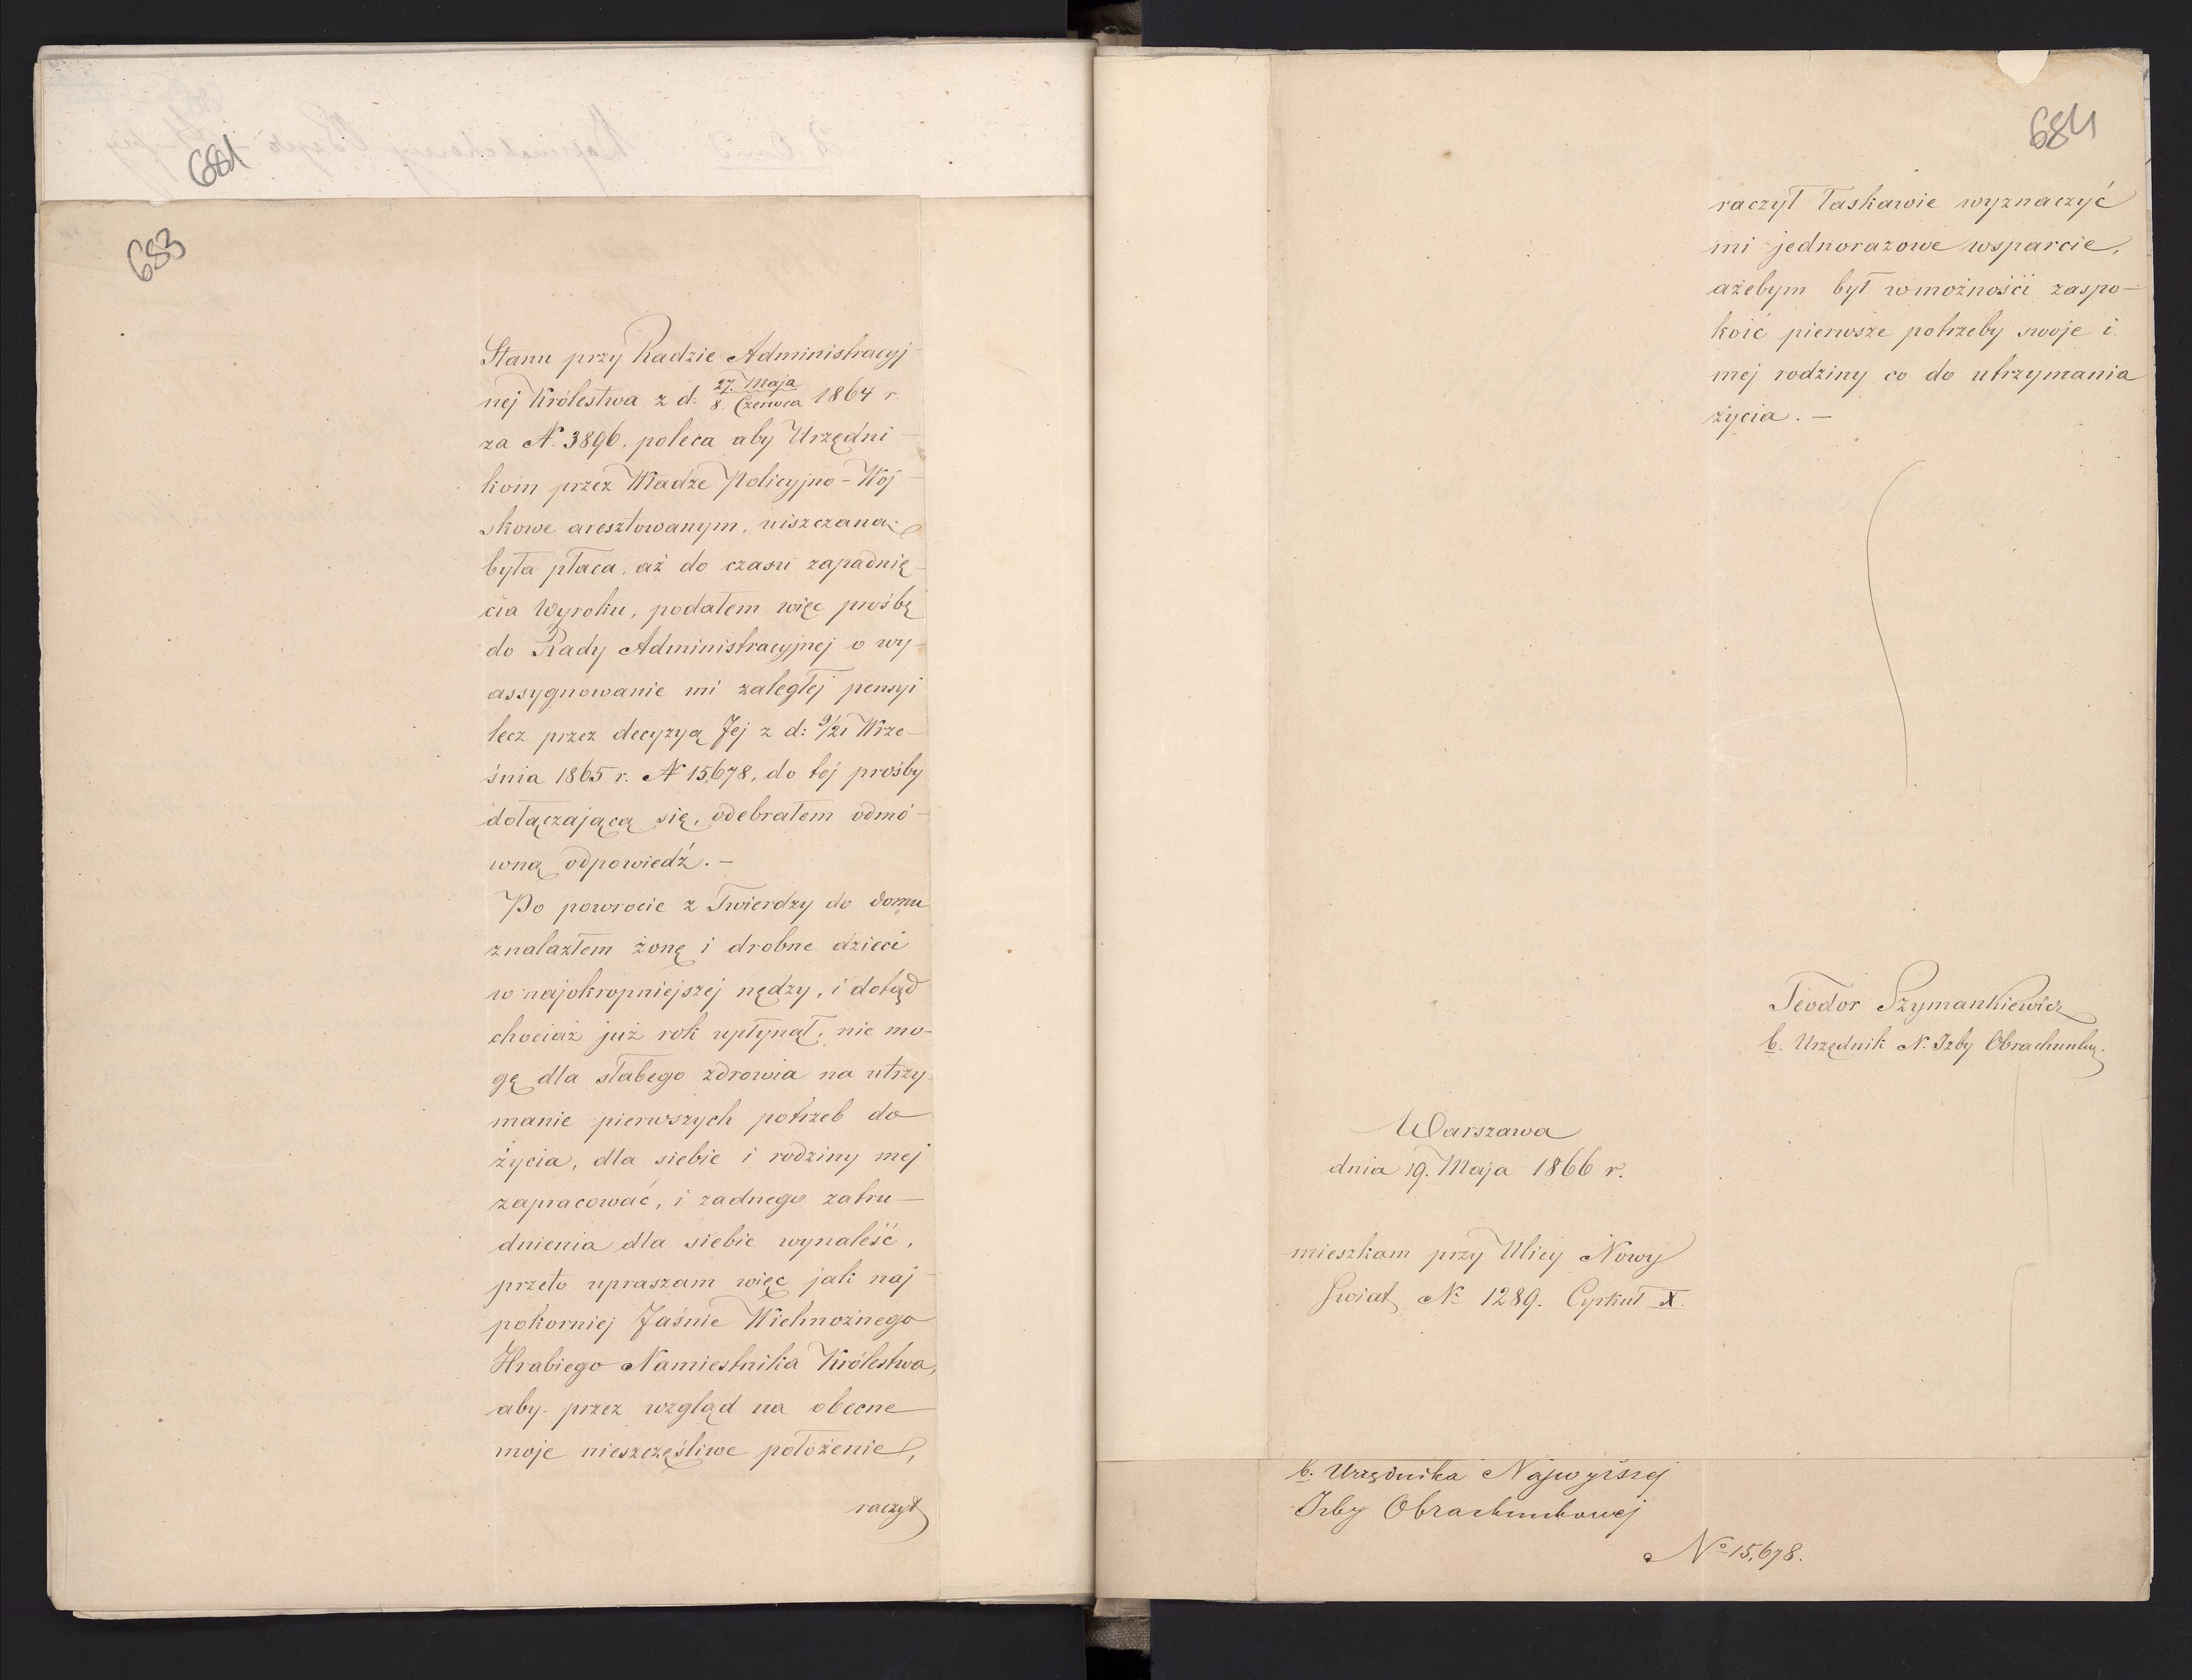 681
683
Stanu przy Radzie Administracyj-
nej Królestwa z d: 27. Maja / 8. Czerwca 1864 r.
za N. 3896. poleca aby Urzędni-
kom przez Władze Policyjno-Woj-
skowe aresztowanym, uiszczana
była płaca, aż do czasu zapadnię-
cia Wyroku, podałem więc prośbę
do Rady Administracyjnej o wy-
assygnowanie mi zaległej pensyi
lecz przez decyzyą Jej z d: 9/21 Wrze-
śnia 1865 r. N 15,678, do téj prośby
dołączającą się, odebrałem odmo-
wną odpowiedź. -
Po powrocie z Twierdzy do domu
znalazłem żonę i drobne dzieci
w najokropniejszej nędzy, i dotąd
chociaż już rok upłynął, nie mo-
gę dla słabego zdrowia na utrzy-
manie pierwszych potrzeb do
życia, dla siebie i rodziny mej
zapracować, i żadnego zatru-
dnienia dla siebie wynaleść,
przeto upraszam więc jak naj-
pokorniej Jaśnie Wielmożnego
Hrabiego Namiestnika Królestwa,
aby przez wzgląd na obecne
moje nieszczęśliwe położenie,
raczył
684
raczył łaskawie wyznaczyć
mi jednorazowe wsparcie,
ażebym był w możności zaspo-
koić pierwsze potrzeby swoje i
mej rodziny co do utrzymania
życia. -
Teodor Szymankiewicz
b. Urzędnik N. Izby Obrachunkq.
Warszawa
dnia 19. Maja 1866 r.
mieszkam przy Ulicy Nowy
Świat № 1289. Cyrkuł X.
b. Urzędnika Najwyższej
Izby Obrachunkowej
№ 15,678.